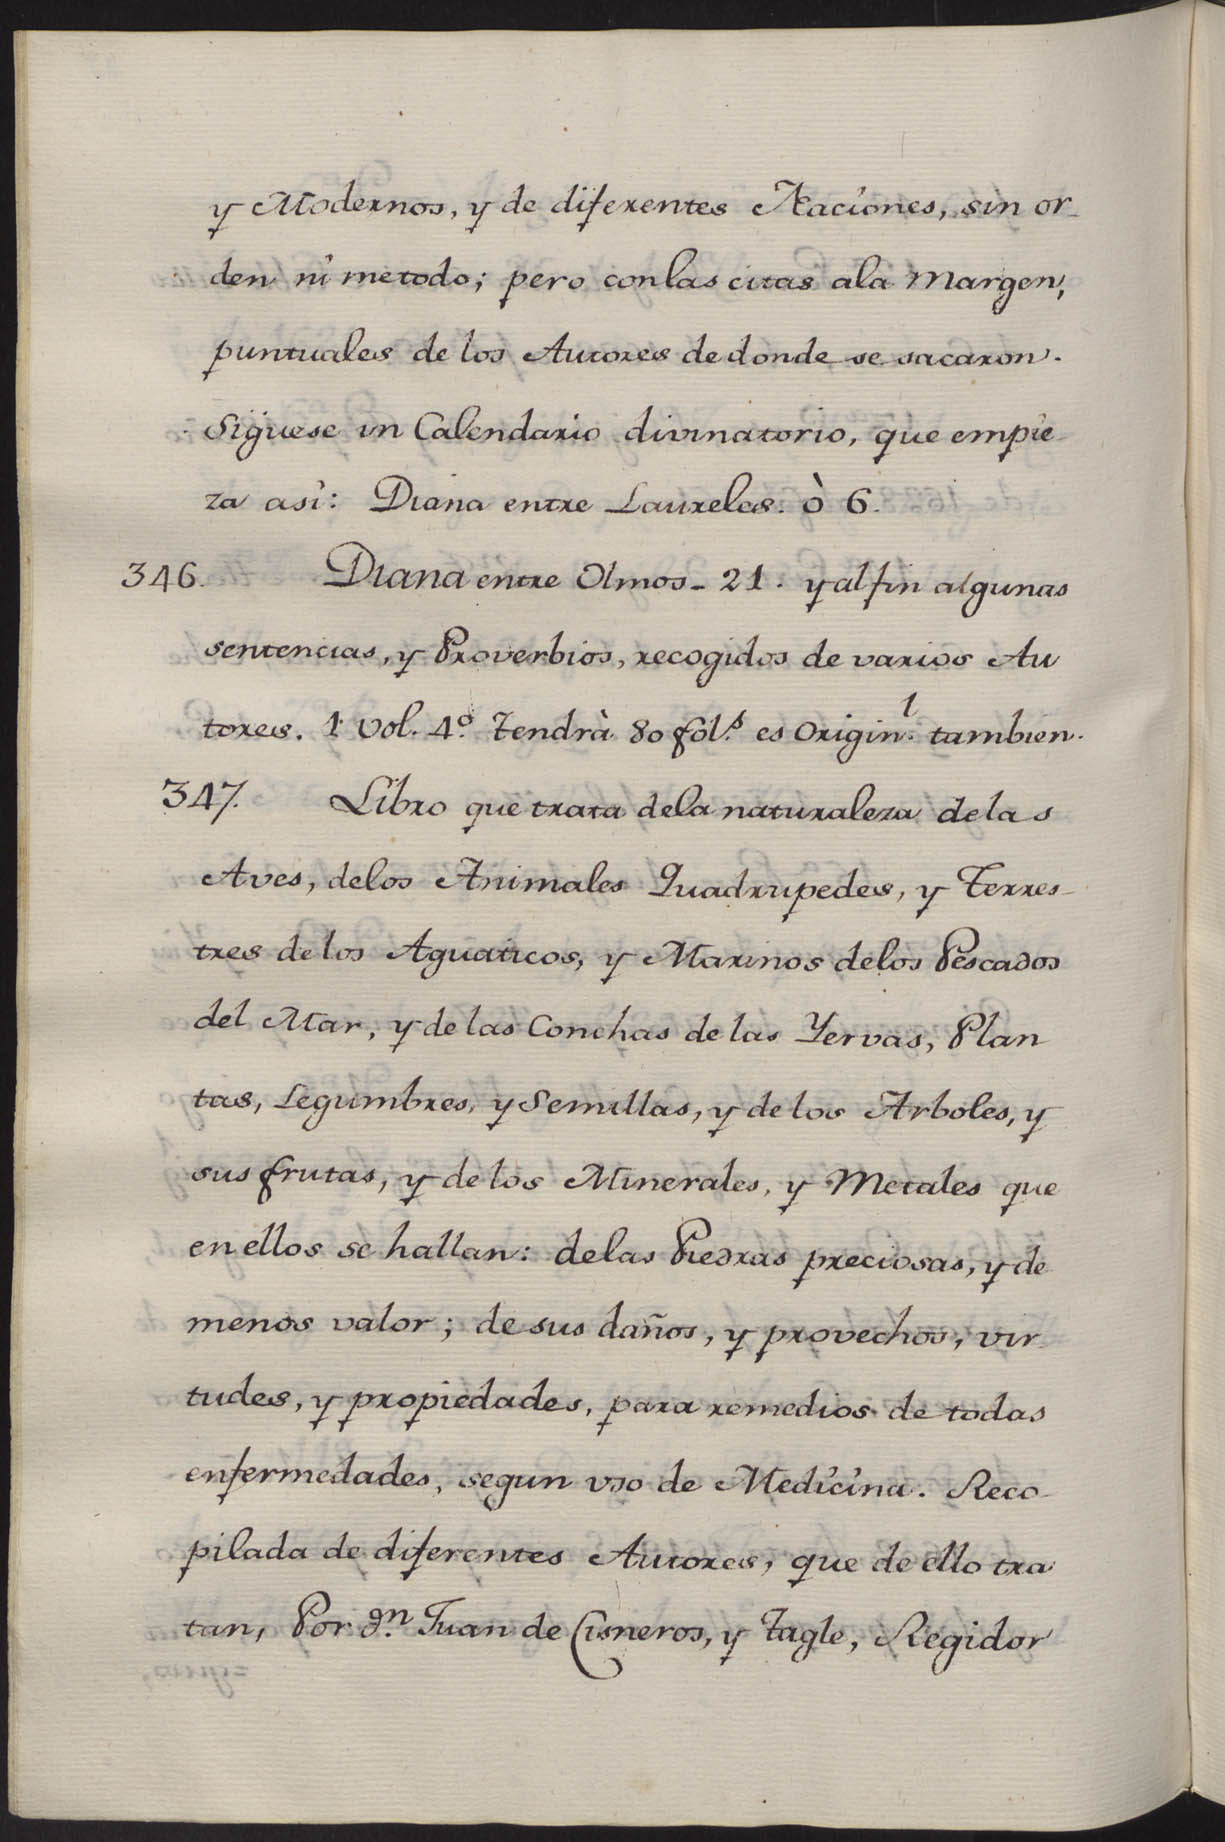 y Modernos, y de diferentes Naciones, sin or-
den ni metodo; pero con las citas ala Margen,
puntuales de los Autores de donde se sacaron.
Siguese un Calendario divinatorio, que empie-
za asi: Diana entre Laureles. ò 6.
346. Diana entre Olmos - 21. y al fin algunas
sentencias, y Proverbios, recogidos de varios Au
tores. 1 Vol. 4.º Tendrà 80 fol.s es Origin.l tambien.
347. Libro que trata dela naturaleza delas
Aves, delos Animales Quadrupedes, y Terres-
tres de los Aquaticos, y Marinos delos Pescados
del Mar, y de las Conchas de las Yervas, Plan
tas, Legumbres, y Semillas, y de los Arboles, y
sus frutas, y de los Minerales, y Metales que
en ellos se hallan: delas Piedras preciosas, y de
menos valor; de sus daños, y provechos, vir-
tudes, y propiedades, para remedios de todas
enfermedades, segun vso de Medicina. Reco-
pilada de diferentes Autores, que de ello tra
tan, Por d.n Juan de Cisneros, y Tagle, Regidor